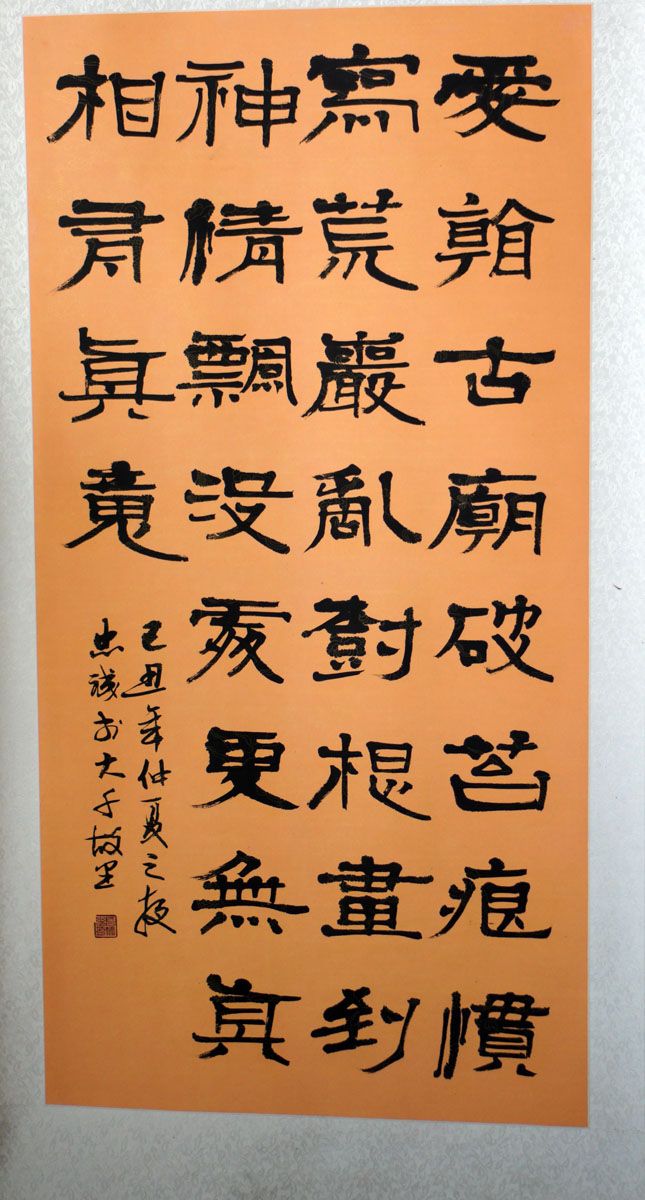 愛看古廟破苔痕慣
寫荒巖亂樹根畫到
神情飄沒處更無真
相有真魂
己丑年仲夏之夜
忠誠於大千故里